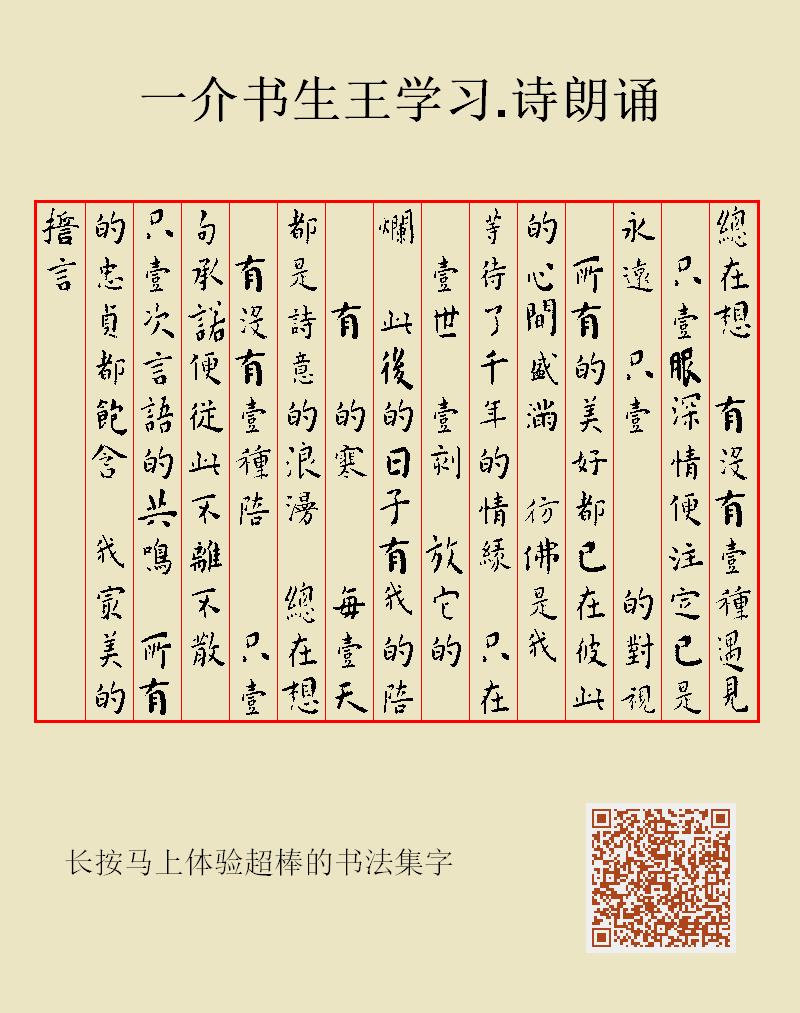 一介书生王学习.诗朗诵
總在想 有沒有壹種遇見
只壹眼深情便注定已是
永遠 只壹 的對視
所有的美好都已在彼此
的心間盛滿 彷佛是我
等待了千年的情緣 只在
壹世 壹剎 放它的
爛 此後的日子有我的陪
有 的寒 每壹天
都是詩意的浪漫 總在想
有沒有壹種陪 只壹
句承諾便從此不離不散
只壹次言語的共鳴 所有
的忠貞都飽含 我最美的
誓言
长按马上体验超棒的书法集字